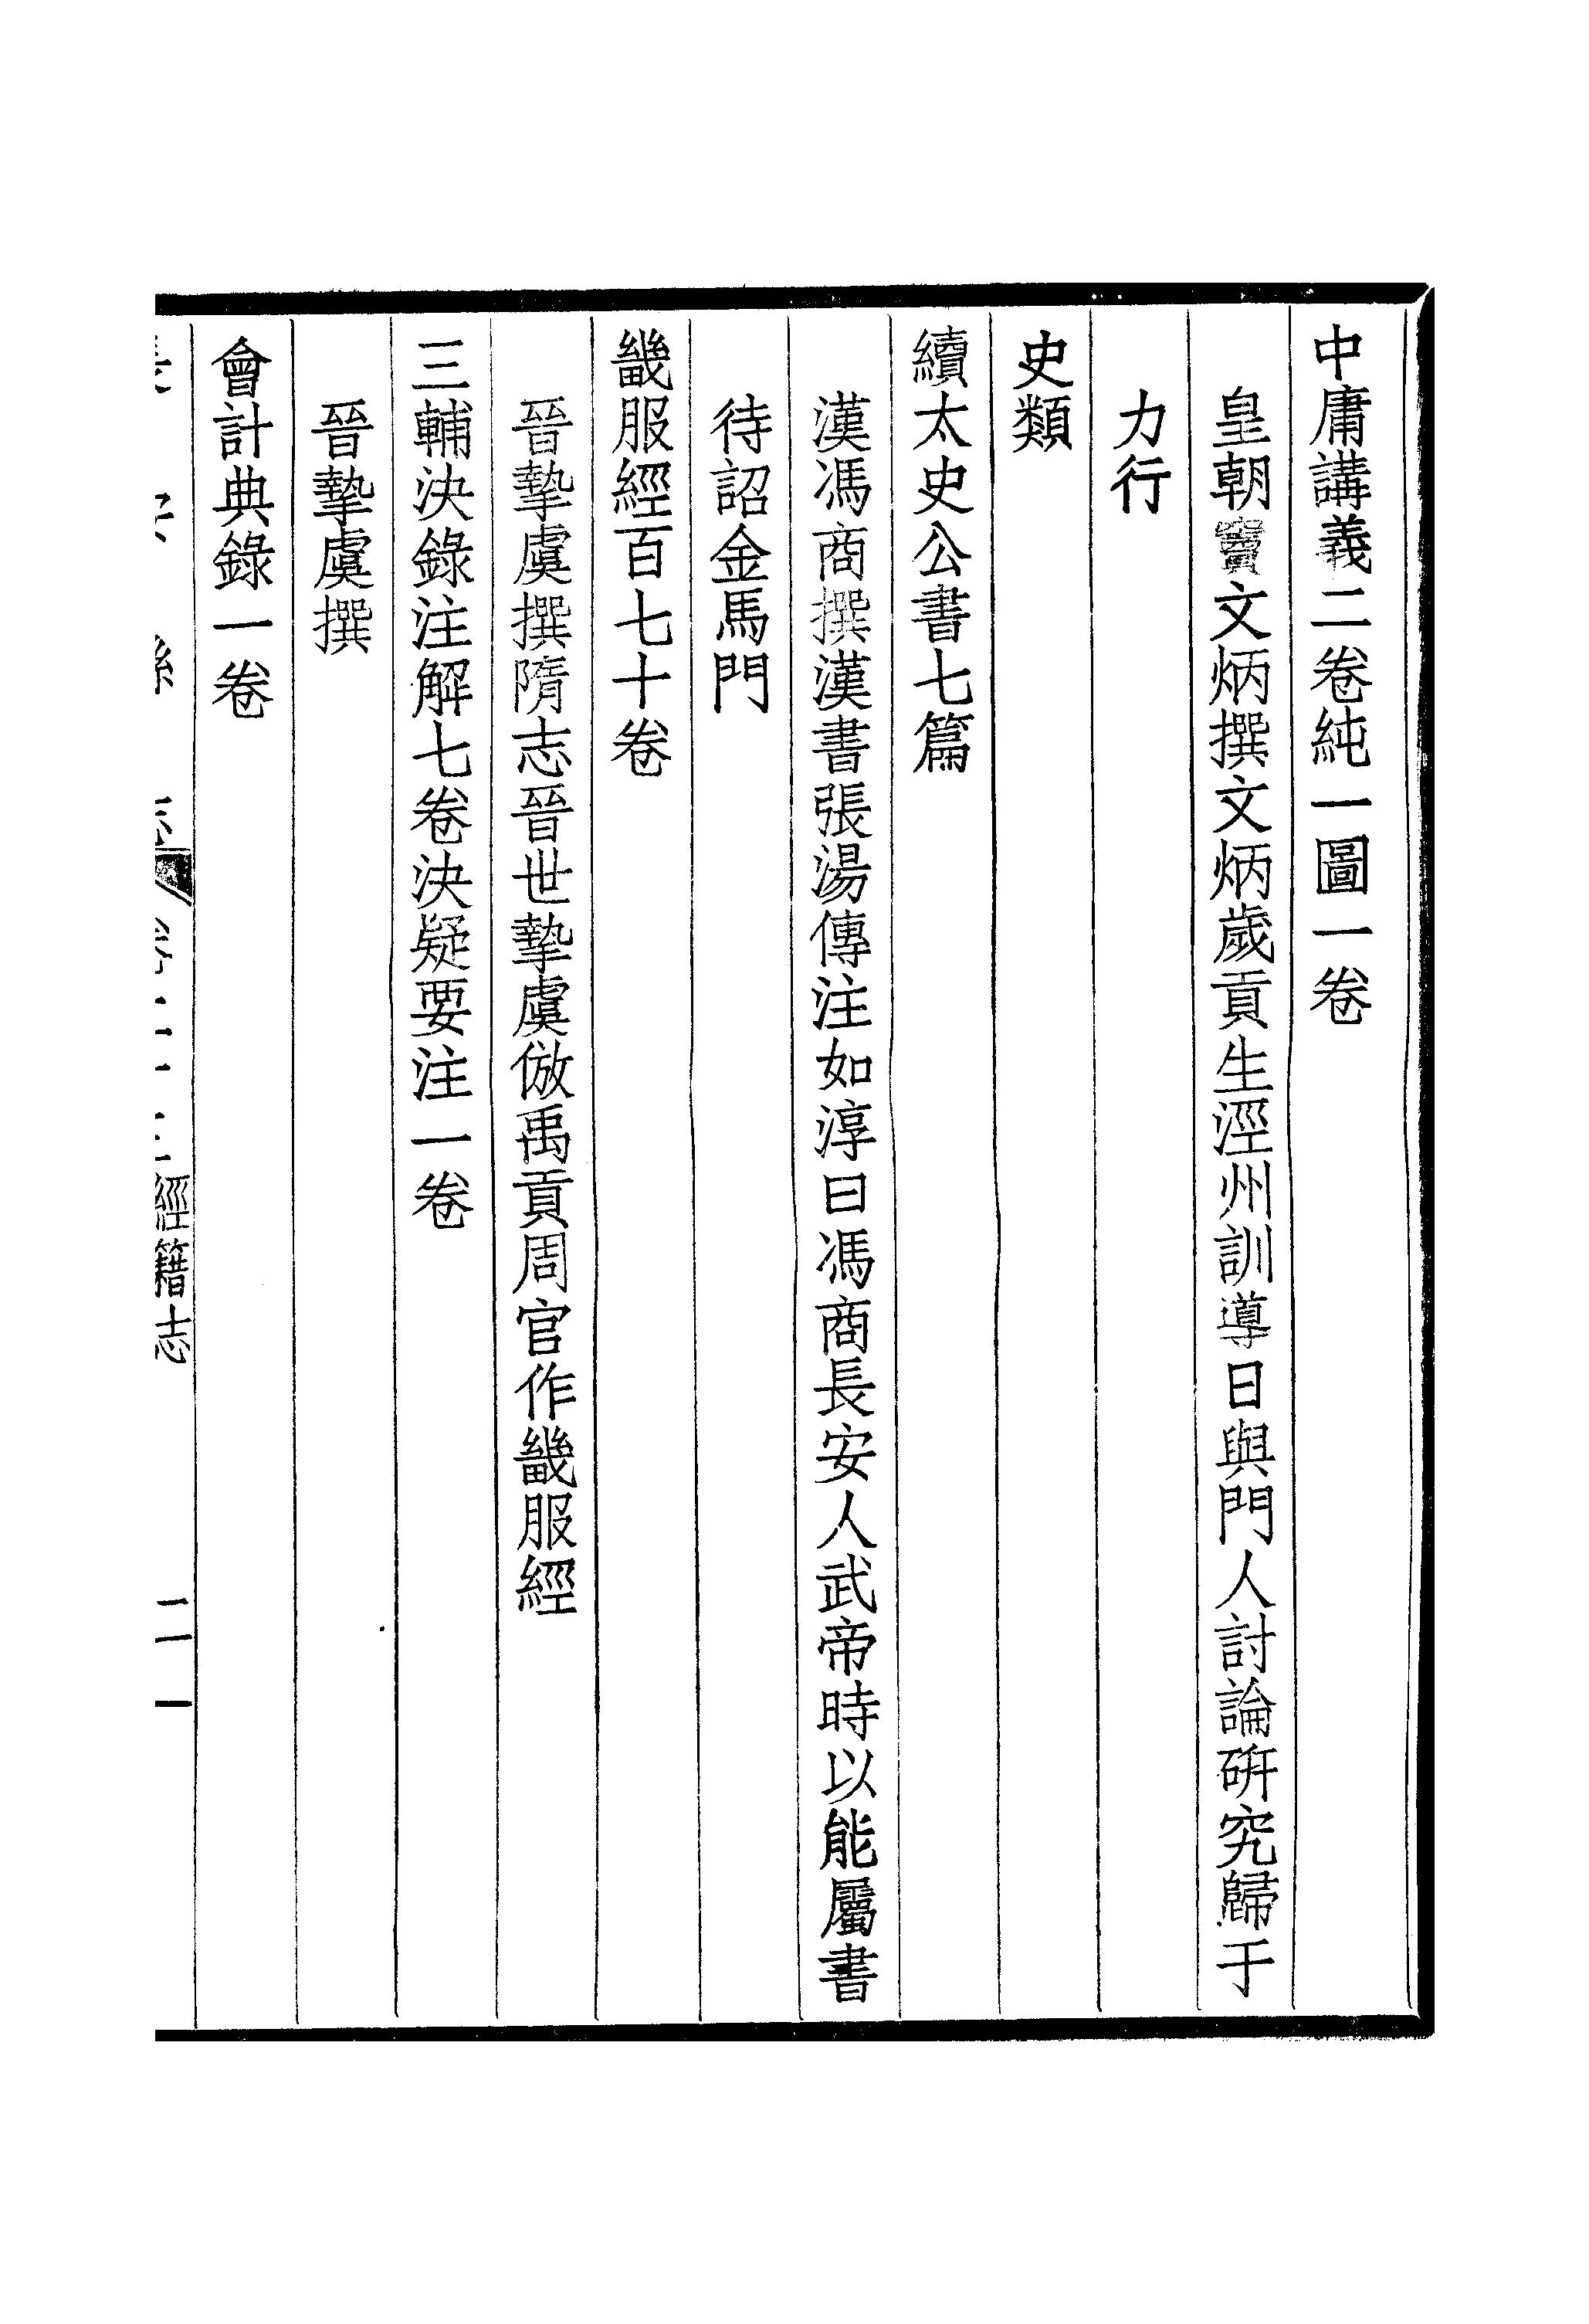 中庸講義二卷純一圖一卷
皇朝竇文炳撰文炳歲貢生涇州訓導日與門人討論硏究歸于
力行
史類
續太史公書七篇
漢馮商撰漢書張湯傳注如淳曰馮商長安人武帝時以能屬書
待詔金馬門
畿服經百七十卷
晉摯虞撰隋志晉世摯虞倣禹貢周官作畿服經
三輔決錄注解七卷決疑要注一卷
晉摯虞撰
會計典錄一卷
經籍志